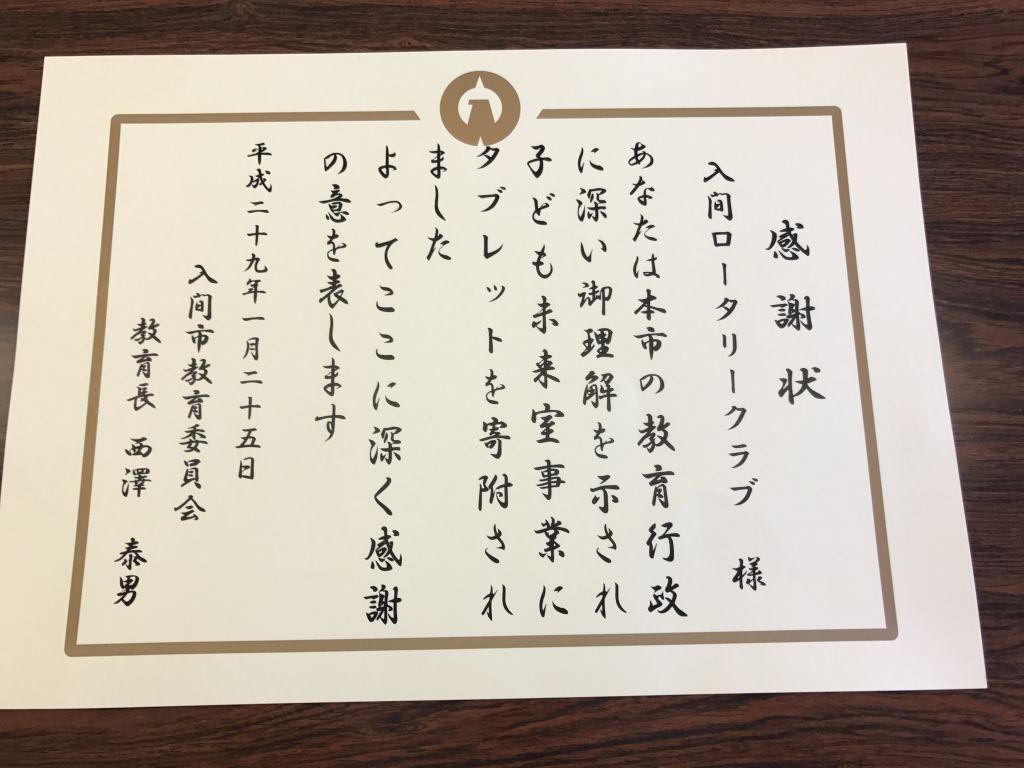 感謝状
入間ロータリークラブ 様
あなたは本市の教育行政
に深い御理解を示され
子ども未来室事業に
タブレットを寄附され
ました
よってここに深く感謝
の意を表します
平成二十九年一月二十五日
入間市教育委員会
教育長 西澤 泰男